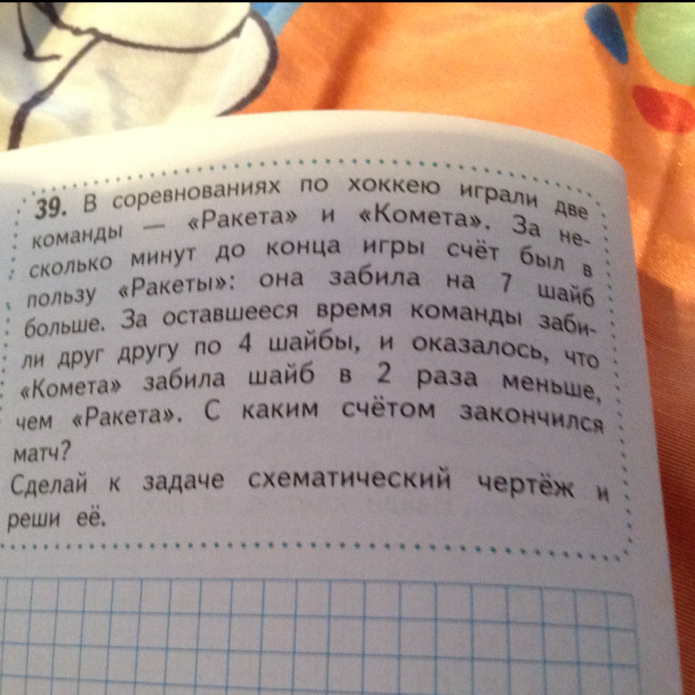 39. В соревнованиях по хоккею играли две
команды — «Ракета» и «Комета». За не-
сколько минут до конца игры счёт был в
пользу «Ракеты»: она забила на 7 шайб
больше. За оставшееся время команды заби-
ли друг другу по 4 шайбы, и оказалось, что
«Комета» забила шайб в 2 раза меньше,
чем «Ракета». С каким счётом закончился
матч?
Сделай к задаче схематический чертёж и
реши её.